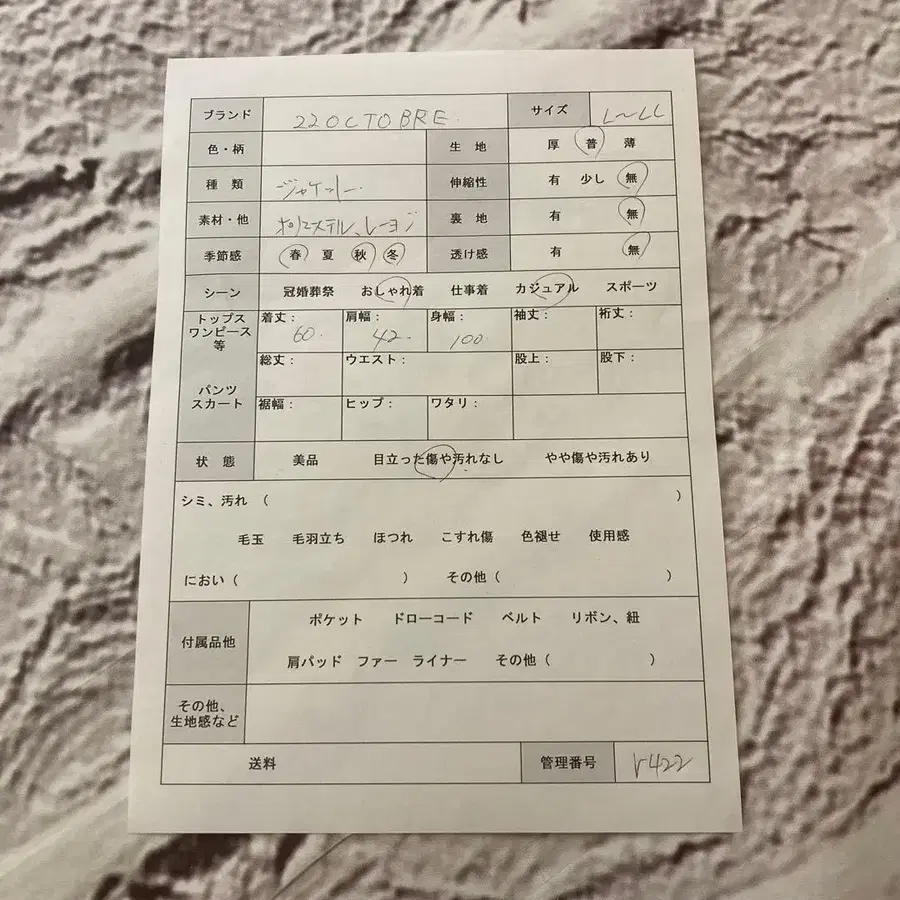 ブランド 22OCTOBRE サイズ L〜LL
色・柄 生地 厚 普 薄
種類 ジャケット 伸縮性 有 少し 無
素材・他 ポリエステル、レーヨン 裏地 有 無
季節感 春 夏 秋 冬 透け感 有 無
シーン 冠婚葬祭 おしゃれ着 仕事着 カジュアル スポーツ
トップス
ワンピース
等
着丈： 肩幅： 身幅： 袖丈： 裄丈：
60. 42. 100
パンツ
スカート
総丈： ウエスト： 股上： 股下：
裾幅： ヒップ： ワタリ：
状態 美品 目立った傷や汚れなし やや傷や汚れあり
シミ、汚れ（ ）
毛玉 毛羽立ち ほつれ こすれ傷 色褪せ 使用感
におい（ ） その他（ ）
付属品他 ポケット ドローコード ベルト リボン、紐
肩パッド ファー ライナー その他（ ）
その他、
生地感など
送料 管理番号 r422